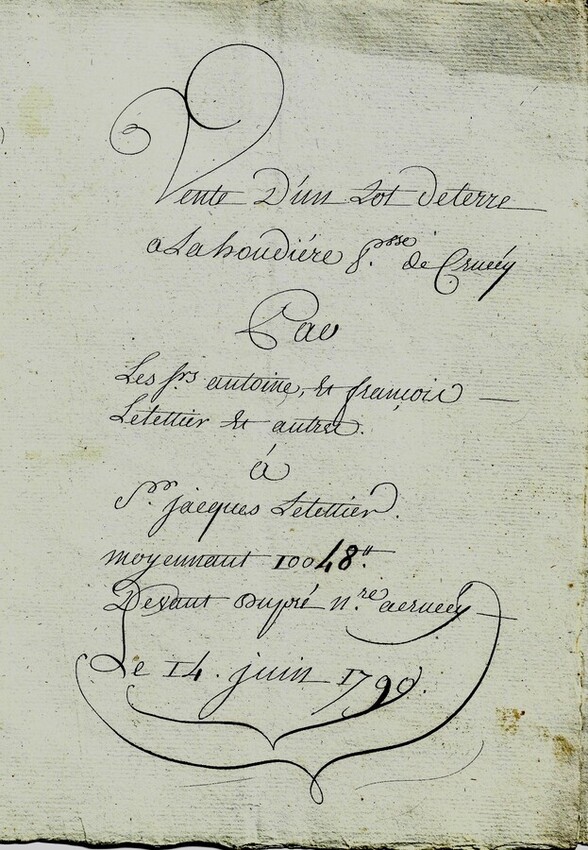 Vente D'un Lot de terre
a La houdiére p.sse de Crucéy
Par
Les srs antoine, et françois
Letellier et autres.
á
Sr. jacques Letellier.
moyennant 10048.tt
Devant Dupré n.re a crucéy
Le 14. juin 1790.